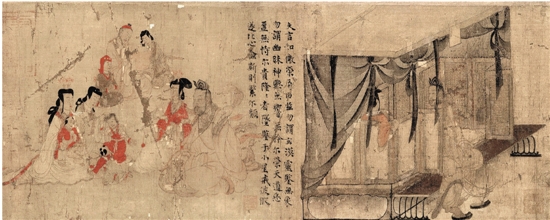 夫言如微榮辱由茲勿謂玄漠靈鑒無象
勿謂幽昧神聽無響無矜尔榮天道惡
盈無恃尔貴隆隆者墜鑒于小星戒彼攸
遂比心螽斯則繁尔類